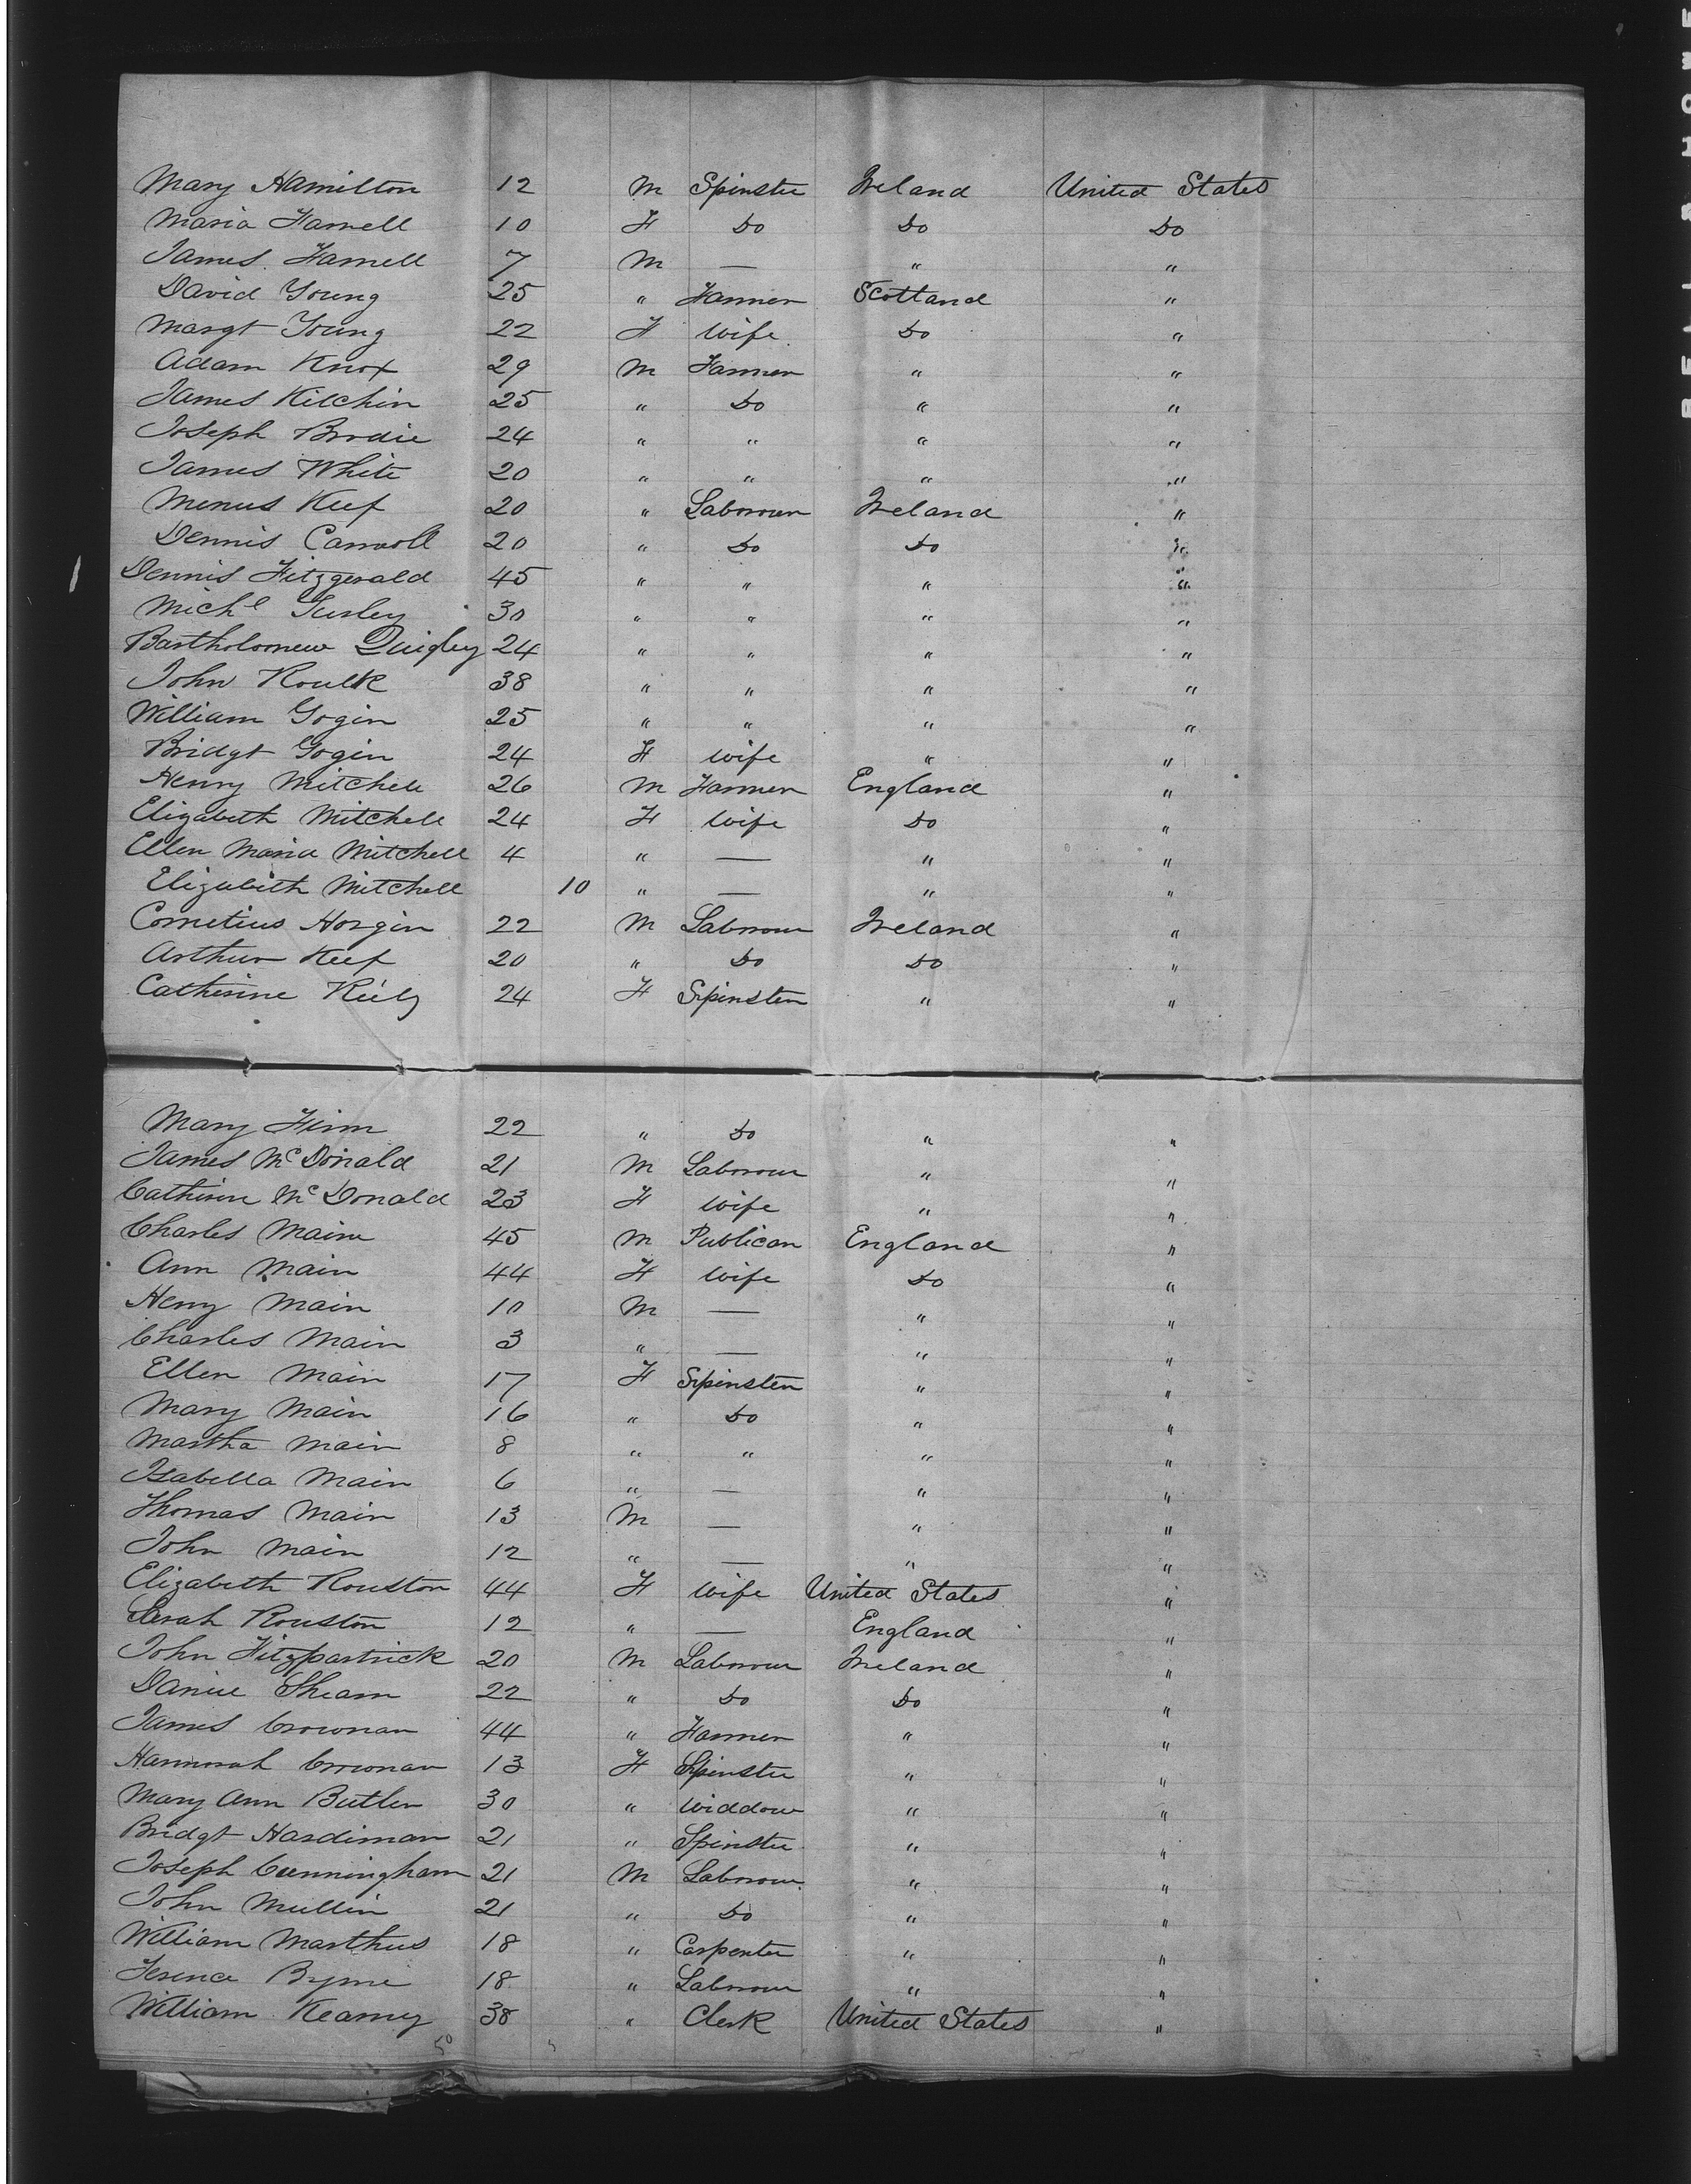 Mary Hamilton 12 M Spinster Ireland United States
Maria Farnell 10 F Do Do Do
James Farnell 7 M — " "
David Young 25 " Farmer Scotland "
Margt Young 22 F Wife Do "
Adam Knox 29 M Farmer " "
James Kilchin 25 " Do " "
Joseph Brodie 24 " " " "
James White 20 " " " "
Menus Keef 20 " Labourer Ireland "
Dennis Carroll 20 " Do Do "
Dennis Fitzgerald 45 " " " "
Michl Turley 30 " " " "
Bartholomew Quigley 24 " " " "
John Roulk 38 " " " "
William Gogin 25 " " " "
Bridgt Gogin 24 F Wife " "
Henry Mitchell 26 M Farmer England "
Elizabeth Mitchell 24 F Wife Do "
Ellen Maria Mitchell 4 " — " "
Elizabeth Mitchell 10 " — " "
Cornelius Horgin 22 M Labourer Ireland "
Arthur Keef 20 " Do Do "
Catherine Kiely 24 F Spinster " "
Mary Finn 22 " Do " "
James McDonald 21 M Labourer " "
Catherine McDonald 23 F Wife " "
Charles Main 45 M Publican England "
Ann Main 44 F Wife Do "
Henry Main 10 M — " "
Charles Main 3 " — " "
Ellen Main 17 F Spinster " "
Mary Main 16 " Do " "
Martha Main 8 " " " "
Isabella Main 6 " — " "
Thomas Main 13 M — " "
John Main 12 " — " "
Elizabeth Rouston 44 F Wife United States "
Sarah Rouston 12 " — England "
John Fitzpartrick 20 M Labourer Ireland "
Daniel Shearn 22 " Do Do "
James Crownan 44 " Farmer " "
Hannorah Crownan 13 F Spinster " "
Mary Ann Butler 30 " Widdow " "
Bridgt Hardiman 21 " Spinster " "
Joseph Cunningham 21 M Labourer " "
John Mullin 21 " Do " "
William Marthus 18 " Carpenter " "
Terence Byrne 18 " Labourer " "
William Kearney 38 " Clerk United States "
50